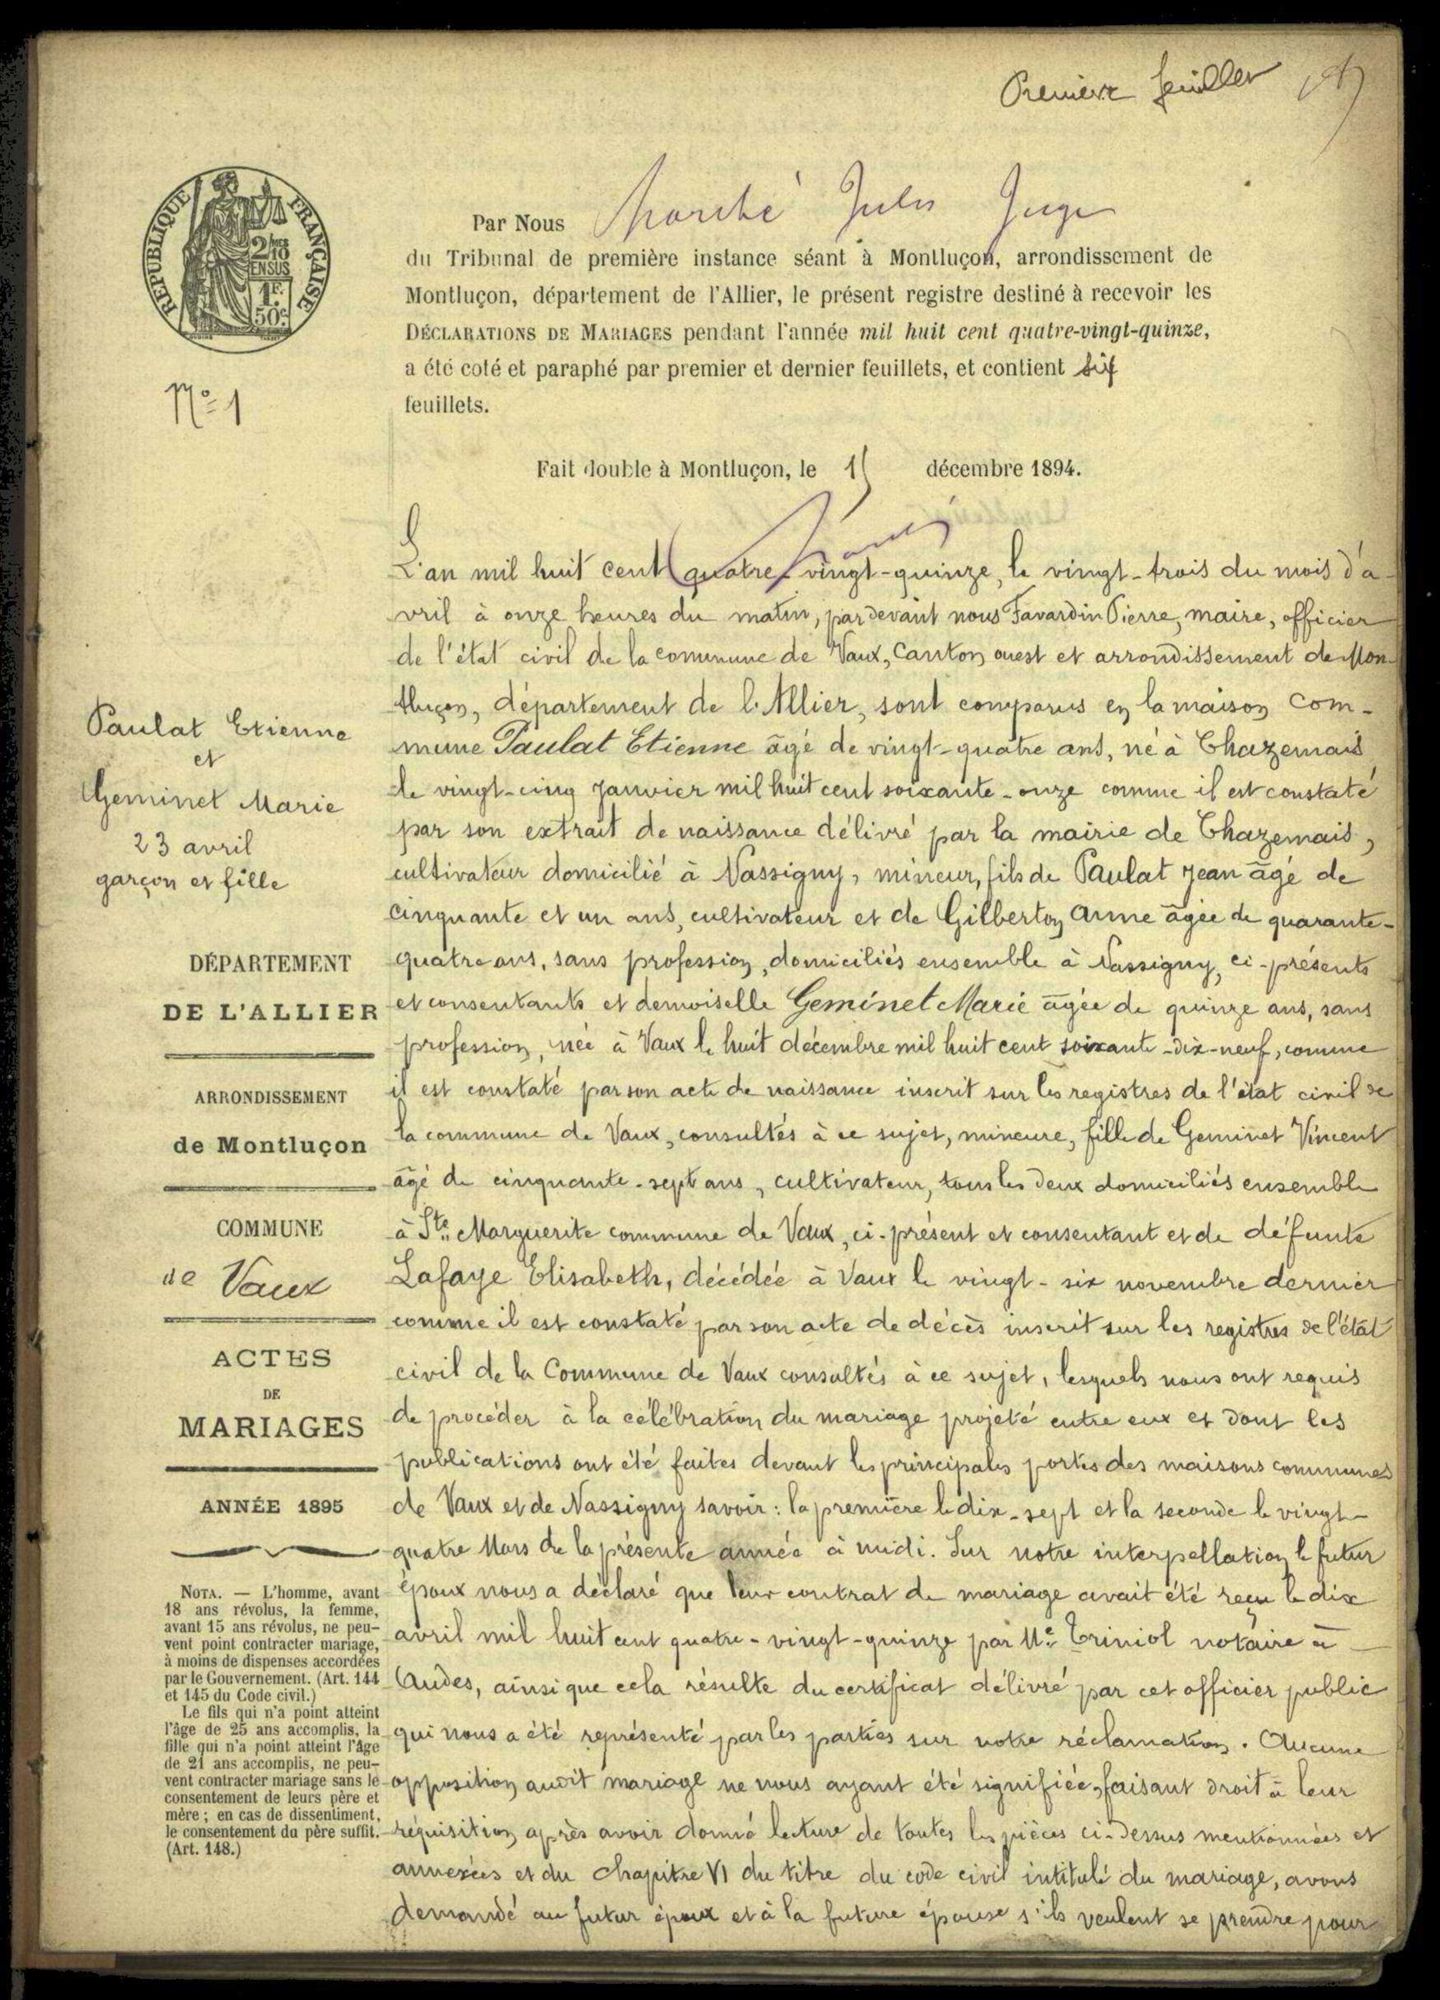 Première feuillet
RÉPUBLIQUE FRANÇAISE
2/10
EN SUS
1F.
50c
Par Nous Jules Juge
du Tribunal de première instance séant à Montluçon, arrondissement de
Montluçon, département de l'Allier, le présent registre destiné à recevoir les
DÉCLARATIONS DE MARIAGES pendant l'année mil huit cent quatre-vingt-quinze,
a été coté et paraphé par premier et dernier feuillets, et contient six
feuillets.
Fait double à Montluçon, le 15 décembre 1894.
No 1
Paulat Etienne
et
Geminet Marie
23 avril
garçon et fille
DÉPARTEMENT
DE L'ALLIER
ARRONDISSEMENT
de Montluçon
COMMUNE
de Vaux
ACTES
DE
MARIAGES
ANNÉE 1895
NOTA. — L'homme, avant
18 ans révolus, la femme,
avant 15 ans révolus, ne peu-
vent point contracter mariage,
à moins de dispenses accordées
par le Gouvernement. (Art. 144
et 145 du Code civil.)
Le fils qui n'a point atteint
l'âge de 25 ans accomplis, la
fille qui n'a point atteint l'âge
de 21 ans accomplis, ne peu-
vent contracter mariage sans le
consentement de leurs père et
mère ; en cas de dissentiment,
le consentement du père suffit.
(Art. 148.)
L'an mil huit cent quatre-vingt-quinze, le vingt-trois du mois d'a-
vril à onze heures du matin, pardevant nous Favardin Pierre, maire, officier
de l'état civil de la commune de Vaux, canton ouest et arrondissement de Mon-
tluçon, département de l'Allier, sont comparus en la maison com-
mune Paulat Etienne âgé de vingt-quatre ans, né à Chazemais
le vingt-cinq Janvier mil huit cent soixante-onze comme il est constaté
par son extrait de naissance délivré par la mairie de Chazemais,
cultivateur domicilié à Nassigny, mineur, fils de Paulat Jean âgé de
cinquante et un ans, cultivateur et de Gilberton Anne âgée de quarante-
quatre ans, sans profession, domiciliés ensemble à Nassigny, ci-présents
et consentants et demoiselle Geminet Marie âgée de quinze ans, sans
profession, née à Vaux le huit décembre mil huit cent soixante-dix-neuf, comme
il est constaté par son acte de naissance inscrit sur les registres de l'état civil de
la commune de Vaux, consultés à ce sujet, mineure, fille de Geminet Vincent
âgé de cinquante-sept ans, cultivateur, tous les deux domiciliés ensemble
à Ste Marguerite commune de Vaux, ci-présent et consentant et de défunte
Lafaye Elisabeth, décédée à Vaux le vingt-six novembre dernier
comme il est constaté par son acte de décès inscrit sur les registres de l'état
civil de la Commune de Vaux consultés à ce sujet, lesquels nous ont requis
de procéder à la célébration du mariage projeté entre eux et dont les
publications ont été faites devant les principales portes des maisons communes
de Vaux et de Nassigny savoir : la première le dix-sept et la seconde le vingt-
quatre Mars de la présente année à midi. Sur notre interpellation le futur
époux nous a déclaré que leur contrat de mariage avait été reçu le dix
avril mil huit cent quatre-vingt-quinze par Me Triniol notaire à
Audes, ainsi que cela résulte du certificat délivré par cet officier public
qui nous a été représenté par les parties sur notre réclamation. Aucune
opposition audit mariage ne nous ayant été signifiée, faisant droit à leur
réquisition, après avoir donné lecture de toutes les pièces ci-dessus mentionnées et
annexées et du chapitre VI du titre du code civil intitulé du mariage, avons
demandé au futur époux et à la future épouse s'ils veulent se prendre pour